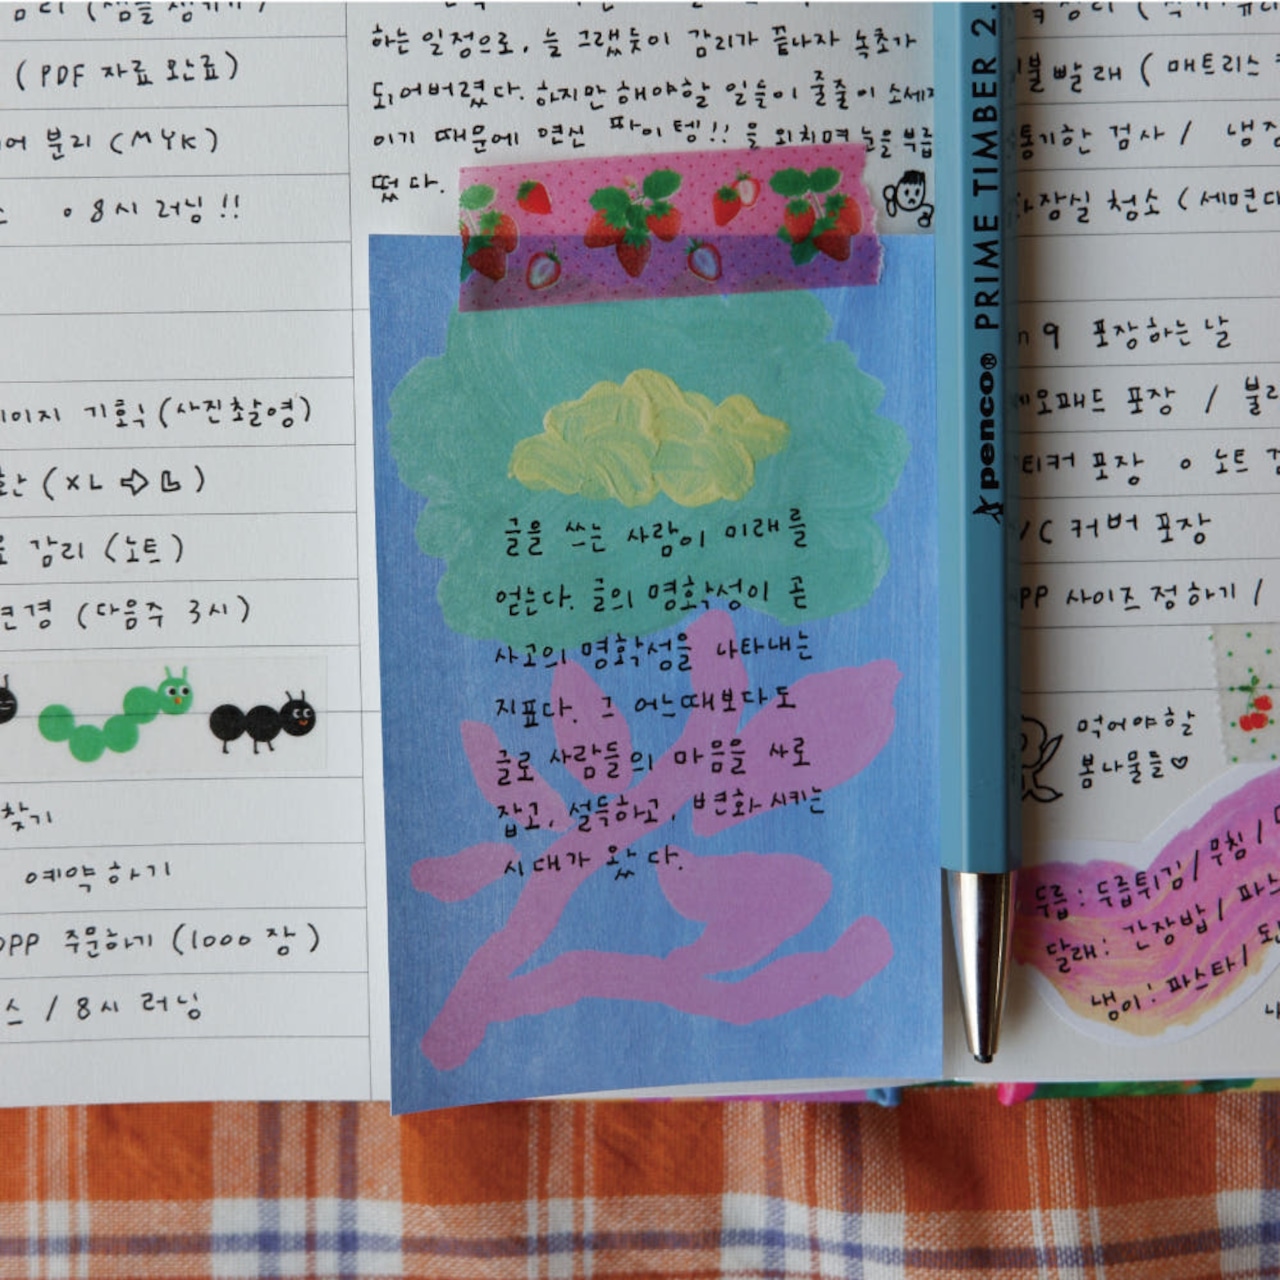 (PDF 자료 완료)
분리 (MYK)
8시 러닝!!
기획 (사진촬영)
(XL ⇨ L)
감리 (노트)
(다음주 3시)
찾기
예약하기
OPP 주문하기 (1000장)
/ 8시 러닝
하는 일정으로, 늘 그랬듯이 감리가 끝나자 녹초가
되어버렸다. 하지만 해야할 일들이 줄줄이
이기 때문에 연신 파이팅!! 을 외치며 눈을 부릅
떴다.
글을 쓰는 사람이 미래를
얻는다. 글의 명확성이 곧
사고의 명확성을 나타내는
지표다. 그 어느때보다도
글로 사람들의 마음을 사로
잡고, 설득하고, 변화시키는
시대가 왔다.
penco® PRIME TIMBER 2.
빨래 (매트리스
검사 /
청소 (세면대
9 포장하는 날
포장 /
포장 o 노트
커버 포장
사이즈 정하기 /
먹어야할
봄나물들♡
두릅: 두릅튀김/ 무침/
달래: 간장밥/
냉이: 파스타/